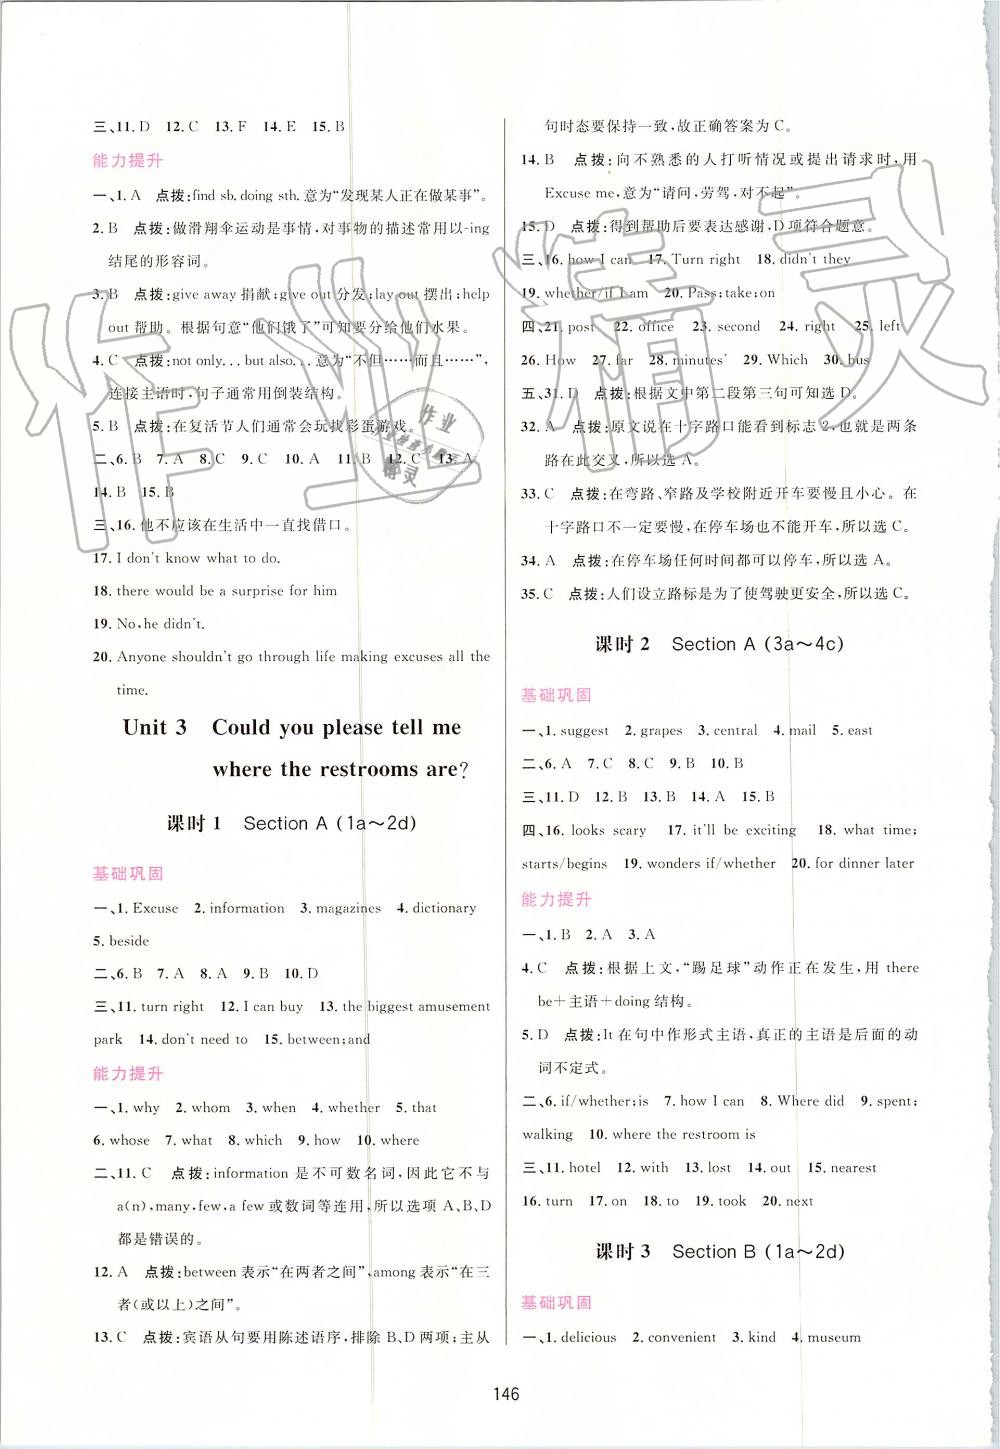 三、11. D 12. C 13. F 14. E 15. B
能力提升
一、1. A 点拨:find sb. doing sth. 意为“发现某人正在做某事”。
2. B 点拨:做滑翔伞运动是事情,对事物的描述常用以-ing
结尾的形容词。
3. B 点拨:give away 捐献;give out 分发;lay out 摆出;help
out 帮助。根据句意“他们饿了”可知要分给他们水果。
4. C 点拨:not only... but also... 意为“不但……而且……”,
连接主语时,句子通常用倒装结构。
5. B 点拨:在复活节人们通常会玩找彩蛋游戏。
二、6. B 7. A 8. C 9. C 10. A 11. B 12. C 13. A
14. B 15. B
三、16. 他不应该在生活中一直找借口。
17. I don't know what to do.
18. there would be a surprise for him
19. No, he didn't.
20. Anyone shouldn't go through life making excuses all the
time.
Unit 3 Could you please tell me
where the restrooms are?
课时 1 Section A (1a～2d)
基础巩固
一、1. Excuse 2. information 3. magazines 4. dictionary
5. beside
二、6. B 7. A 8. A 9. B 10. D
三、11. turn right 12. I can buy 13. the biggest amusement
park 14. don't need to 15. between;and
能力提升
一、1. why 2. whom 3. when 4. whether 5. that
6. whose 7. what 8. which 9. how 10. where
二、11. C 点拨:information 是不可数名词,因此它不与
a(n),many,few,a few 或数词等连用,所以选项 A、B、D
都是错误的。
12. A 点拨:between 表示“在两者之间”,among 表示“在三
者(或以上)之间”。
13. C 点拨:宾语从句要用陈述语序,排除 B、D 两项;主从
句时态要保持一致,故正确答案为 C。
14. B 点拨:向不熟悉的人打听情况或提出请求时,用
Excuse me,意为“请问,劳驾,对不起”。
15. D 点拨:得到帮助后要表达感谢,D 项符合题意。
三、16. how I can 17. Turn right 18. didn't they
19. whether/if I am 20. Pass;take;on
四、21. post 22. office 23. second 24. right 25. left
26. How 27. far 28. minutes' 29. Which 30. bus
五、31. D 点拨:根据文中第二段第三句可知选 D。
32. A 点拨:原文说在十字路口能看到标志 2,也就是两条
路在此交叉,所以选 A。
33. C 点拨:在弯路、窄路及学校附近开车要慢且小心。在
十字路口不一定要慢,在停车场也不能开车,所以选 C。
34. A 点拨:在停车场任何时间都可以停车,所以选 A。
35. C 点拨:人们设立路标是为了使驾驶更安全,所以选 C。
课时 2 Section A (3a～4c)
基础巩固
一、1. suggest 2. grapes 3. central 4. mail 5. east
二、6. A 7. C 8. C 9. B 10. B
三、11. D 12. B 13. B 14. A 15. B
四、16. looks scary 17. it'll be exciting 18. what time;
starts/begins 19. wonders if/whether 20. for dinner later
能力提升
一、1. B 2. A 3. A
4. C 点拨:根据上文,“踢足球”动作正在发生,用 there
be＋主语＋doing 结构。
5. D 点拨:It 在句中作形式主语,真正的主语是后面的动
词不定式。
二、6. if/whether;is 7. how I can 8. Where did 9. spent;
walking 10. where the restroom is
三、11. hotel 12. with 13. lost 14. out 15. nearest
16. turn 17. on 18. to 19. took 20. next
课时 3 Section B (1a～2d)
基础巩固
一、1. delicious 2. convenient 3. kind 4. museum
146
作业精灵